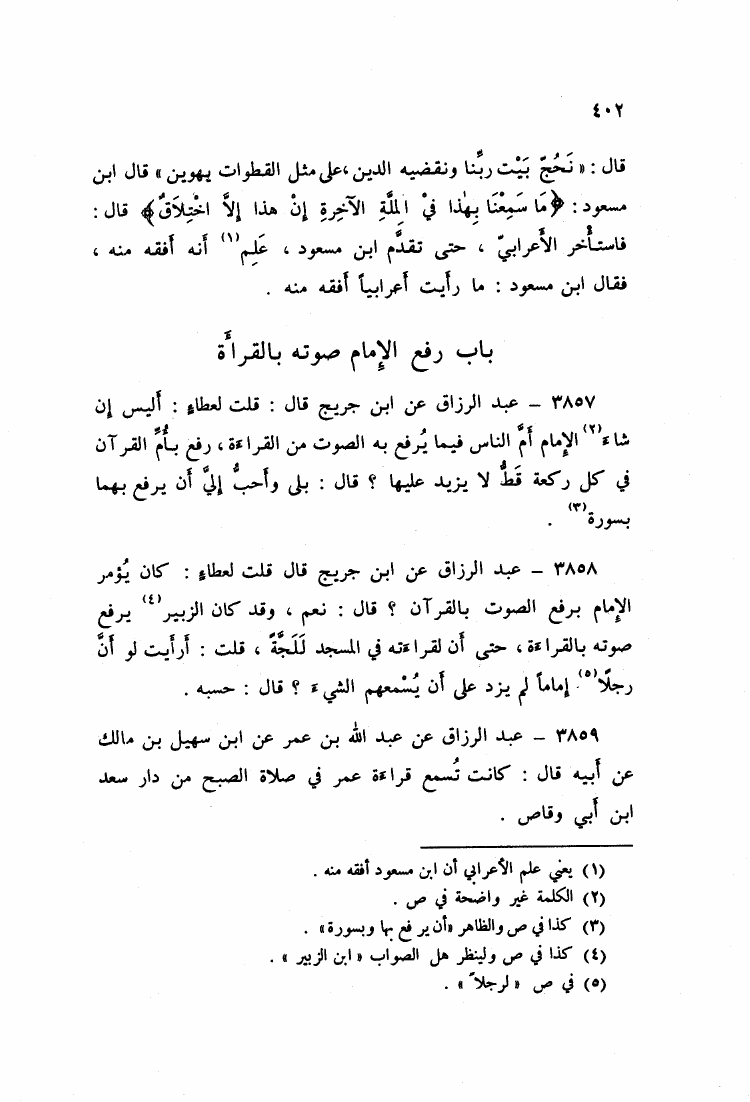 ٤٠٢
قال : « نَحُجّ بَيْت ربِّنا ونقضيه الدين ، على مثل القطوات يهوين » قال ابن
مسعود : ﴿ مَا سَمِعْنَا بِهٰذا فيْ المِلَّةِ الآخِرةِ إنْ هذا إلاَّ اخْتِلَاقٌ ﴾ قال :
فاستأُخر الأَعرابيّ ، حتى تقدَّم ابن مسعود ، عَلِم(١) أَنه أَفقه منه ،
فقال ابن مسعود : ما رأَيت أَعرابياً أَفقه منه .
باب رفع الإمام صوته بالقرأَة
٣٨٥٧ – عبد الرزاق عن ابن جريج قال : قلت لعطاءٍ : أَليس إن
شاء(٢) الإمام أَمَّ الناس فيما يُرفع به الصوت من القراءة ، رفع بأُمِّ القرآن
في كل ركعة قَطُّ لا يزيد عليها ؟ قال : بلى وأَحبُّ إليَّ أَن يرفع بهما
بسورة(٣) .
٣٨٥٨ – عبد الرزاق عن ابن جريج قال قلت لعطاءٍ : كان يُؤمر
الإمام برفع الصوت بالقرآن ؟ قال : نعم ، وقد كان الزبير(٤) يرفع
صوته بالقراءة ، حتى أَن لقراءته في المسجد لَلَجَّةً ، قلت : أَرأَيت لو أَنَّ
رجلًا(٥) إماماً لم يزد على أَن يُسْمعهم الشيء ؟ قال : حسبه .
٣٨٥٩ – عبد الرزاق عن عبد الله بن عمر عن ابن سهيل بن مالك
عن أَبيه قال : كانت تُسمع قراءة عمر في صلاة الصبح من دار سعد
ابن أَبي وقاص .
(١) يعني علم الأعرابي أن ابن مسعود أفقه منه .
(٢) الكلمة غير واضحة في ص .
(٣) كذا في ص والظاهر «أن يرفع بها وبسورة» .
(٤) كذا في ص ولينظر هل الصواب « ابن الزبير » .
(٥) في ص « لرجلاً » .